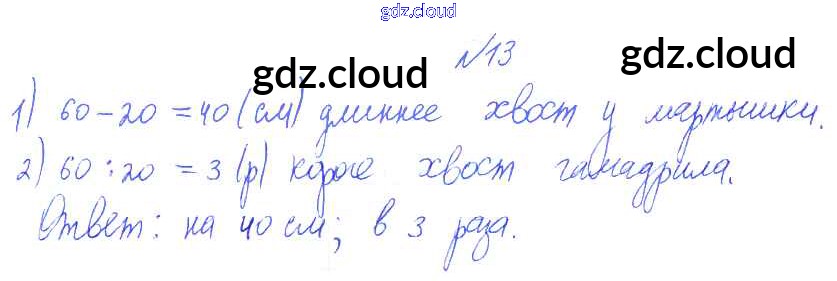 gdz.cloud
№13
gdz.cloud gdz.cloud
1) 60-20=40 (см) длиннее хвост у мартышки.
2) 60:20=3 (р) короче хвост гамадрила.
Ответ: на 40 см; в 3 раза.